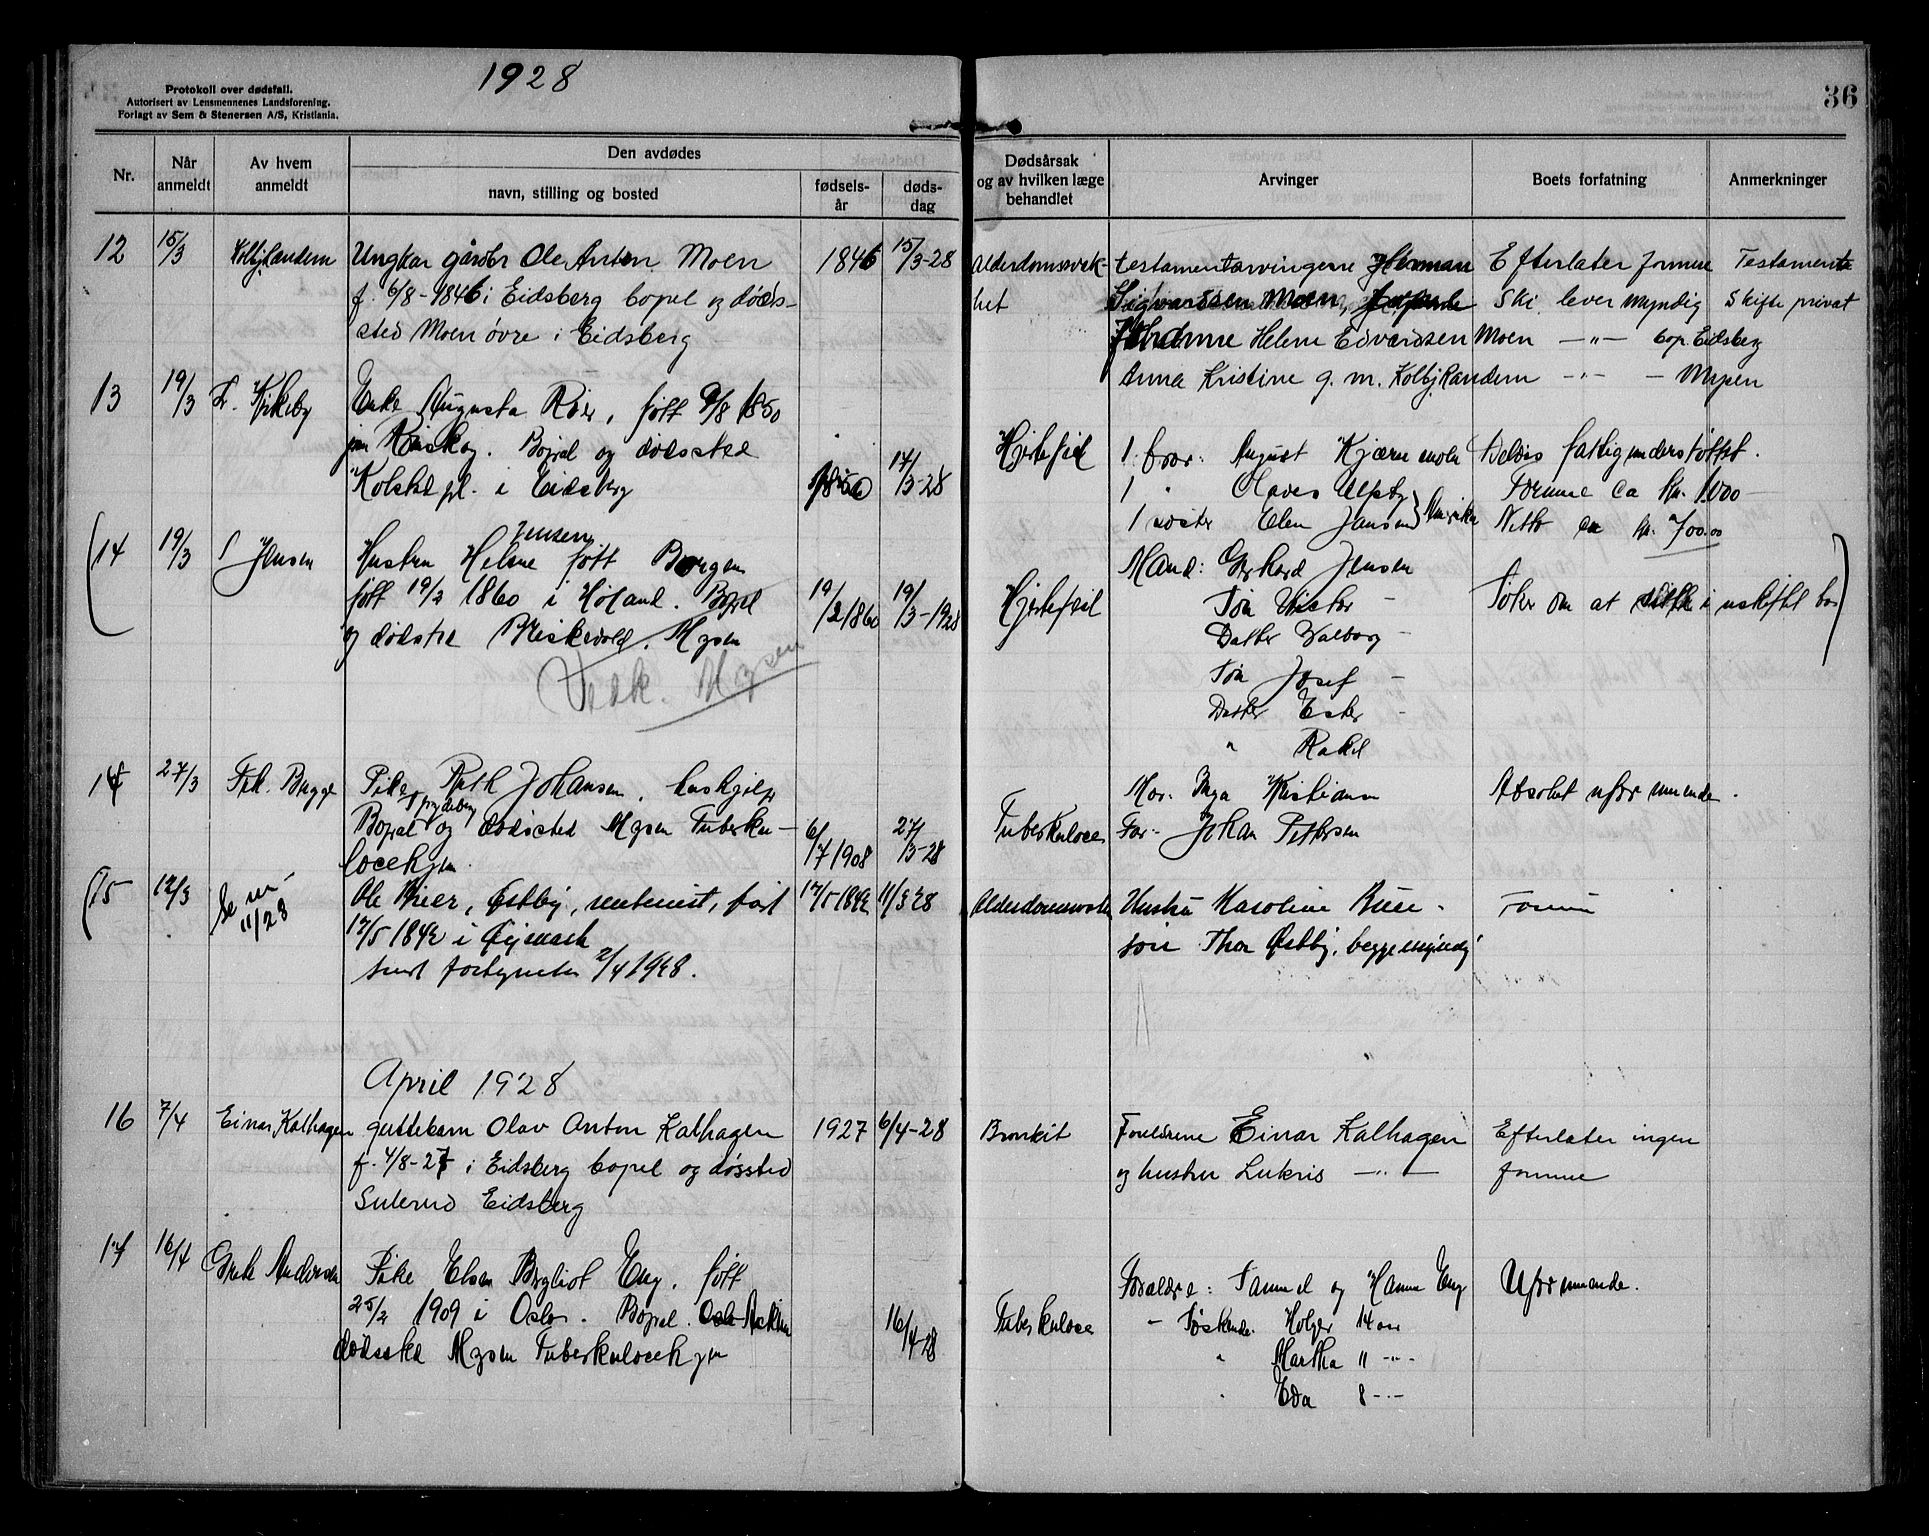 1928
36
Protokoll over dødsfall.
Autorisert av Lensmennenes Landsforening.
Forlagt av Sem & Stenersen A/S, Kristiania.
Nr.
Når anmeldt
Av hvem anmeldt
Den avdødes
navn, stilling og bosted
fødsels-år
døds-dag
Dødsårsak og av hvilken læge behandlet
Arvinger
Boets forfatning
Anmerkninger
12 15/3 Kolbj. Randem Ungkar gårdbr Ole Anton Moen 1846 15/3-28 Alderdomssvak- testamentarvingerne Herman Efterlater formue Testamente
f. 6/8-1846 i Eidsberg bopel og døds- het Sigvardssen Moen, Ski lever myndig skifte privat
sted Moen øvre i Eidsberg Helene Edvardsen Moen —"— bop. Eidsberg
Anna Kristine g. m. Kolbj. Randem —"— Mysen
13 19/3 L. Kirkeby Enke Augusta Røer, født 9/8 1850
Bopel og dødssted Hjertefeil 1 bror: August Kjærnemoen fattigunderstøttet.
pl. i Eidsberg 1850 17/3-28 1 " Formue ca kr. 1000
1 søster Elen Jansen Amerika Netto ca kr. 700.00
14 19/3 Jensen Hustru Helene Jensen født Borgen Mand: Gerhard Jensen
født 19/2 1860 i Høland. Bopel 19/2 1860 19/3-1928 Hjertefeil Søn Victor – Søker om at sitte i uskiftet bo
og dødssted Mysen Datter Valborg –
Mysen Søn Josef –
Datter Ester –
" Rakel
14 27/3 Frk. Bugge Pike Ruth Johansen, hushjelp Mor: Inga Kristiansen Absolut uformuende.
Bopel Spydeberg og dødssted Mysen Tuberku- 6/7 1908 27/3-28 Tuberkulose Far: Johan Pettersen
losehjem.
15 12/3 11/28 Ole Østby, født 17/5 1842 11/3 28 Alderdomssvak Hustru Karoline Formue
17/5 1842 i Øymark søn Thor Østby, begge myndig
2/4 1928.
April 1928
16 7/4 Einar Kalhagen guttebarn Olav Anton Kalhagen 1927 6/4-28 Bronkit Foreldrene Einar Kalhagen Efterlater ingen
f. 4/8-27 i Eidsberg bopel og dødssted og hustru Lukris —"— formue
Sulerud Eidsberg
17 16/4 Grete Andersen Pike Elsa Bergliot Eng. født Forældre: Samuel og Hanna Eng Uformuende.
25/2 1909 i Oslo. Bopel. Askim 16/4-28 Tuberkulose – Søskende: Holger 14 år
dødssted Mysen Tuberkulosehjem " Martha 11 -"-
" Eda 8 -"-